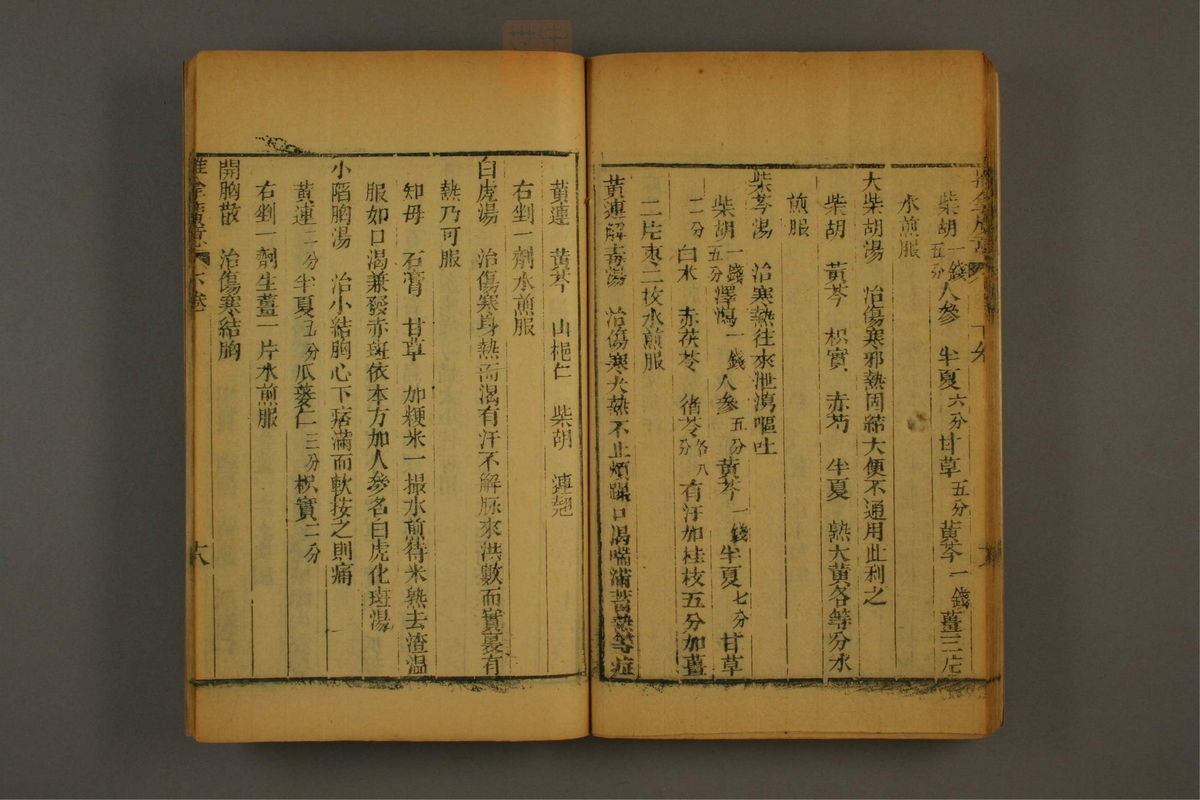 柴胡一錢五分人參 半夏六分甘草五分黃芩一錢薑三片
水煎服
大柴胡湯 治傷寒邪熱固結大便不通用此利之
柴胡 黃芩 枳實 赤芍 半夏 熟大黃各等分水
煎服
柴芩湯 治寒熱往來泄瀉嘔吐
柴胡一錢五分澤瀉一錢人參五分黃芩一錢半夏七分甘草
二分白朮 赤茯苓 猪苓各八分有汗加桂枝五分加薑
二片枣二枚水煎服
黃連解毒湯 治傷寒大熱不止煩躁口渴喘滿蓄熱等症
黃連 黃芩 山梔仁 柴胡 連翹
右剉一劑水煎服
白虎湯 治傷寒身熱而渴有汗不解脉來洪數而實裏有
熱乃可服
知母 石膏 甘草 加粳米一撮水煎待米熟去渣温
服如口渴兼發赤斑依本方加人參名白虎化斑湯
小陷胸湯 治小結胸心下痞滿而軟按之則痛
黃連二分半夏五分瓜蔞仁三分枳實二分
右剉一劑生薑一片水煎服
開胸散 治傷寒結胸
下卷
十六